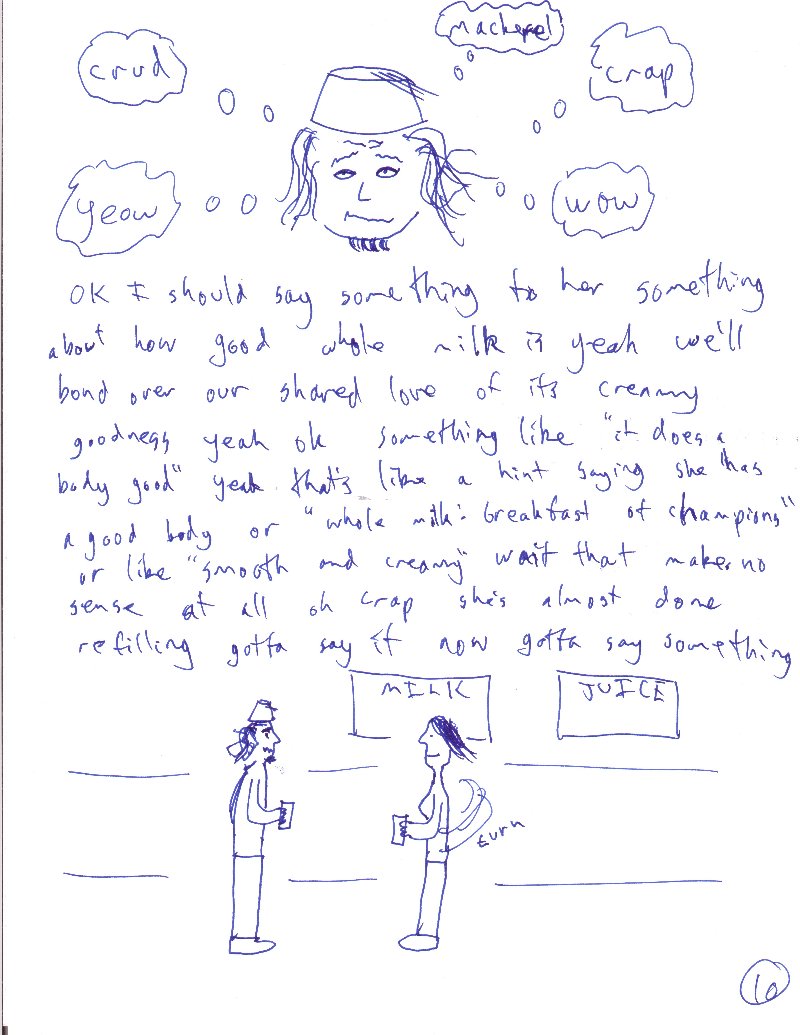 mackerel
crud
crap
yeow
wow
OK I should say something to her something
about how good whole milk is yeah we'll
bond over our shared love of its creamy
goodness yeah ok something like "it does a
body good" yeah that's like a hint saying she has
a good body or "whole milk: breakfast of champions"
or like "smooth and creamy" wait that makes no
sense at all oh crap she's almost done
refilling gotta say it now gotta say something
MILK
JUICE
turn
10